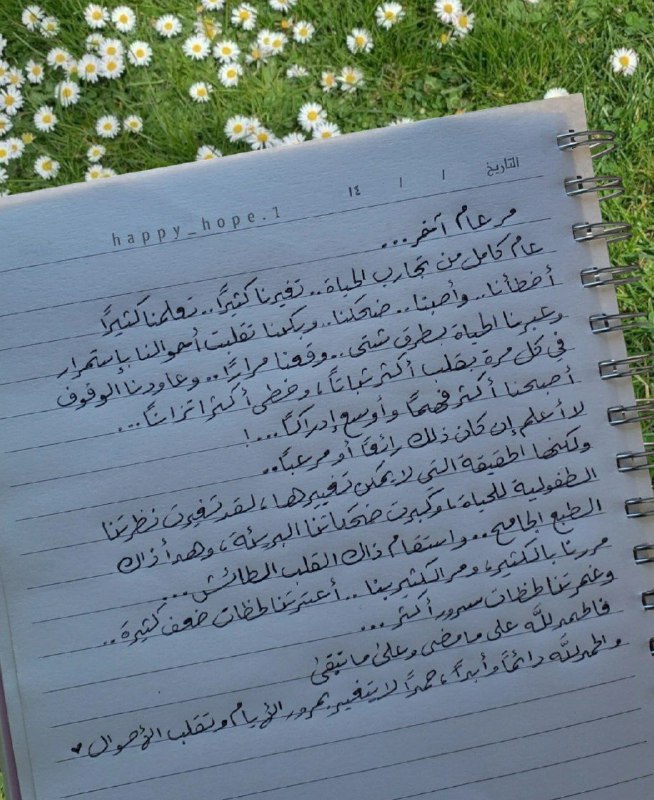 التاريخ / / ١٤
happy_hope.1
مر عام آخر...
عام كامل من تجارب الحياة.. تغيرنا كثيرًا.. تعلمنا كثيرًا
أخطأنا.. وأصبنا.. ضحكنا.. وبكينا تقلبت أحوالنا بإستمرار
وعبرنا الحياة بطرق شتى.. وقعنا مرارًا.. وعاودنا الوقوف
في كل مرة بقلب أكثر ثباتًا، وخطى أكثر اتزانًا...
أصبحنا أكثر فهمًا وأوسع إدراكًا...!
لا أعلم إن كان ذلك رائعًا أو مرعبًا..
ولكنها الحقيقة التي لا يمكن تغييرها، لقد تغيرت نظرتنا
الطفولية للحياة، وكبرت ضحكاتنا البريئة، وهدأ ذاك
الطبع الجامح.. واستقام ذاك القلب الطائش...
مررنا بالكثير، ومر الكثير بنا.. أعترتنا لحظات ضعف كثيرة..
وغمرتنا لحظات سرور أكثر...
فالحمدلله على ما مضى وعلى ما تبقى
والحمدلله دائمًا وأبدًا، حمدًا لا يتغير بمرور الأيام وتقلب الأحوال ♥